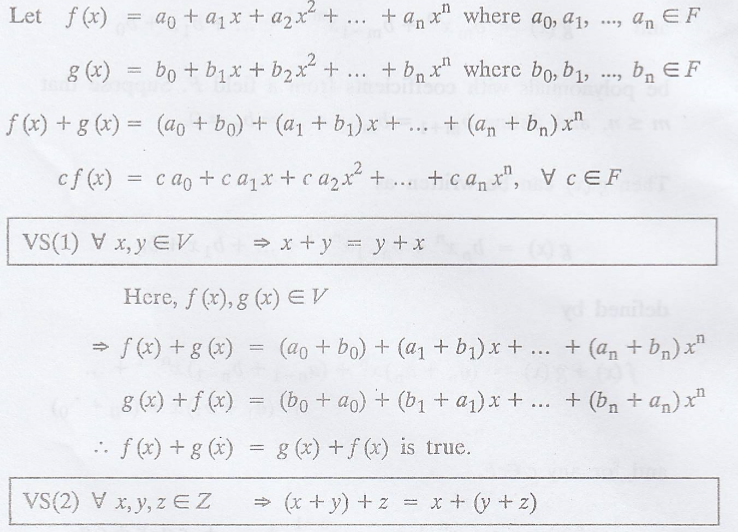 Let f(x) = a₀ + a₁x + a₂x² + ... + aₙxⁿ where a₀, a₁, ..., aₙ ∈ F
g(x) = b₀ + b₁x + b₂x² + ... + bₙxⁿ where b₀, b₁, ..., bₙ ∈ F
f(x) + g(x) = (a₀ + b₀) + (a₁ + b₁)x + ... + (aₙ + bₙ)xⁿ
cf(x) = ca₀ + ca₁x + ca₂x² + ... + caₙxⁿ, ∀ c ∈ F
VS(1) ∀ x, y ∈ V ⇒ x + y = y + x
Here, f(x), g(x) ∈ V
⇒ f(x) + g(x) = (a₀ + b₀) + (a₁ + b₁)x + ... + (aₙ + bₙ)xⁿ
g(x) + f(x) = (b₀ + a₀) + (b₁ + a₁)x + ... + (bₙ + aₙ)xⁿ
∴ f(x) + g(x) = g(x) + f(x) is true.
VS(2) ∀ x, y, z ∈ Z ⇒ (x + y) + z = x + (y + z)